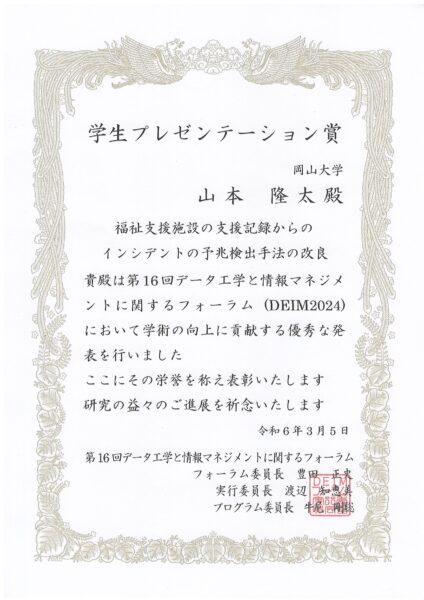 学生プレゼンテーション賞
岡山大学
山本 隆太殿
福祉支援施設の支援記録からの
インシデントの予兆検出手法の改良
貴殿は第16回データ工学と情報マネジメ
ントに関するフォーラム (DEIM2024)
において学術の向上に貢献する優秀な発
表を行いました
ここにその栄誉を称え表彰いたします
研究の益々のご進展を祈念いたします
令和6年3月5日
第16回データ工学と情報マネジメントに関するフォーラム
フォーラム委員長 豊田 正史
実行委員長 渡辺 知恵美
プログラム委員長 牛尼 剛聡
DEIM